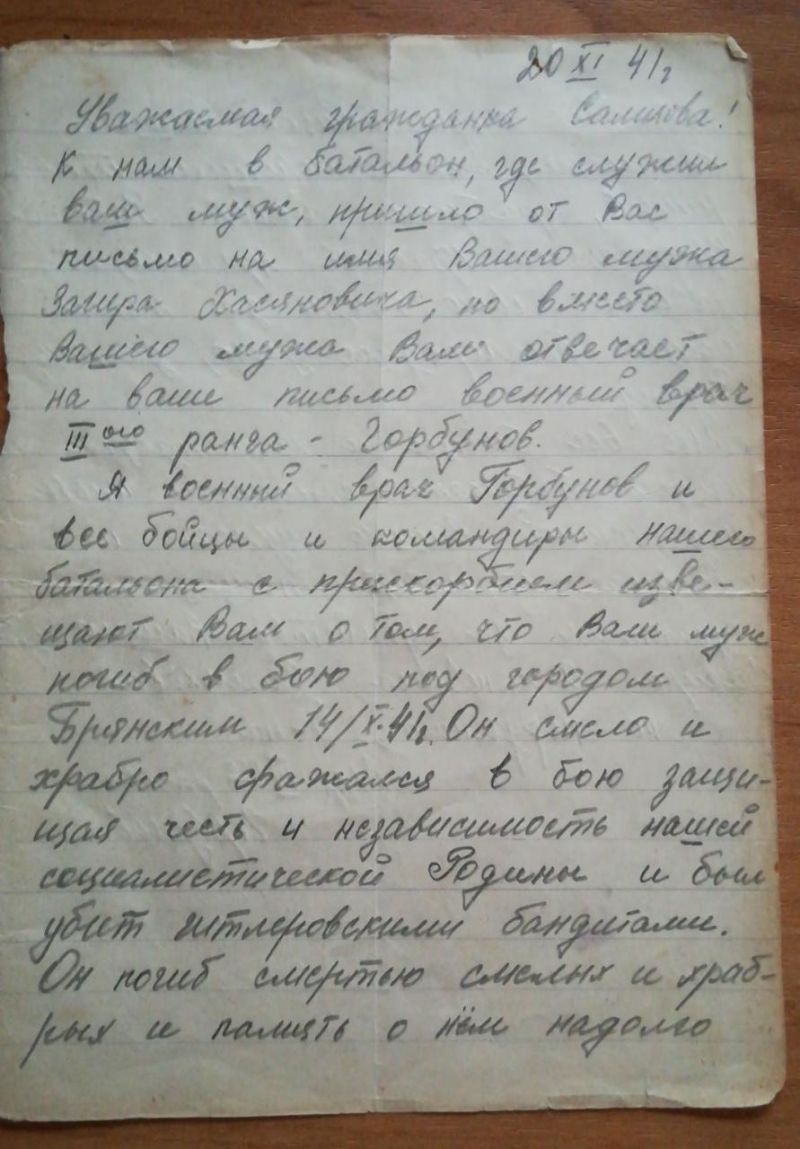 20 XI 41г
Уважаемая гражданка Салихова!
К нам в батальон, где служил
ваш муж, пришло от Вас
письмо на имя Вашего мужа
Загира Хасяновича, но вместо
Вашего мужа Вам отвечает
на ваше письмо военный врач
III ого ранга - Горбунов.
Я военный врач Горбунов и
все бойцы и командиры нашего
батальона с прискорбием изве-
щают Вам о том, что Ваш муж
погиб в бою под городом
Брянским 14/X.41г. Он смело и
храбро сражался в бою защи-
щая честь и независимость нашей
социалистической Родины и был
убит гитлеровскими бандитами.
Он погиб смертью смелых и храб-
рых и память о нём надолго